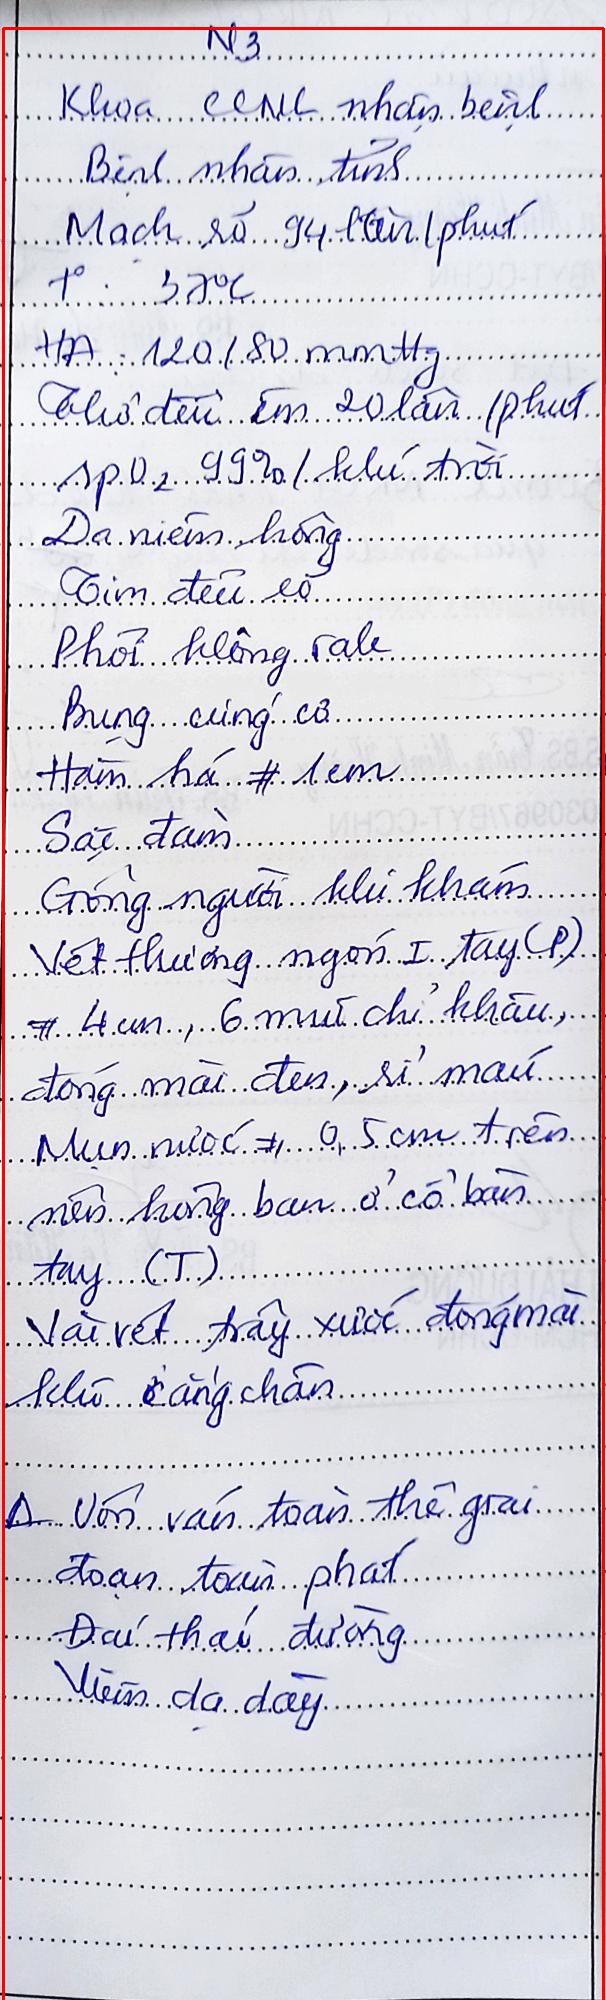 N3
Khoa CCNL nhận bệnh
Bệnh nhân tỉnh
Mạch rõ 94 lần/phút
t° : 37°C
HA : 120/80 mmHg
Thở đều êm 20 lần/phút
SpO₂ 99%/khí trời
Da niêm hồng
Tim đều rõ
Phổi không rale
Bụng cứng cơ
Hàm há # 1cm
Sặc đàm
Gồng người khi khám
Vết thương ngón I tay (P)
# 4cm, 6 mũi chỉ khâu,
đóng mài đen, rỉ máu
Mụn nước # 0,5cm trên
nền hồng ban ở cổ bàn
tay (T)
Vài vết trầy xước đóng mài
khô cẳng chân
Δ Uốn ván toàn thể giai
đoạn toàn phát
Đái tháo đường
Viêm dạ dày